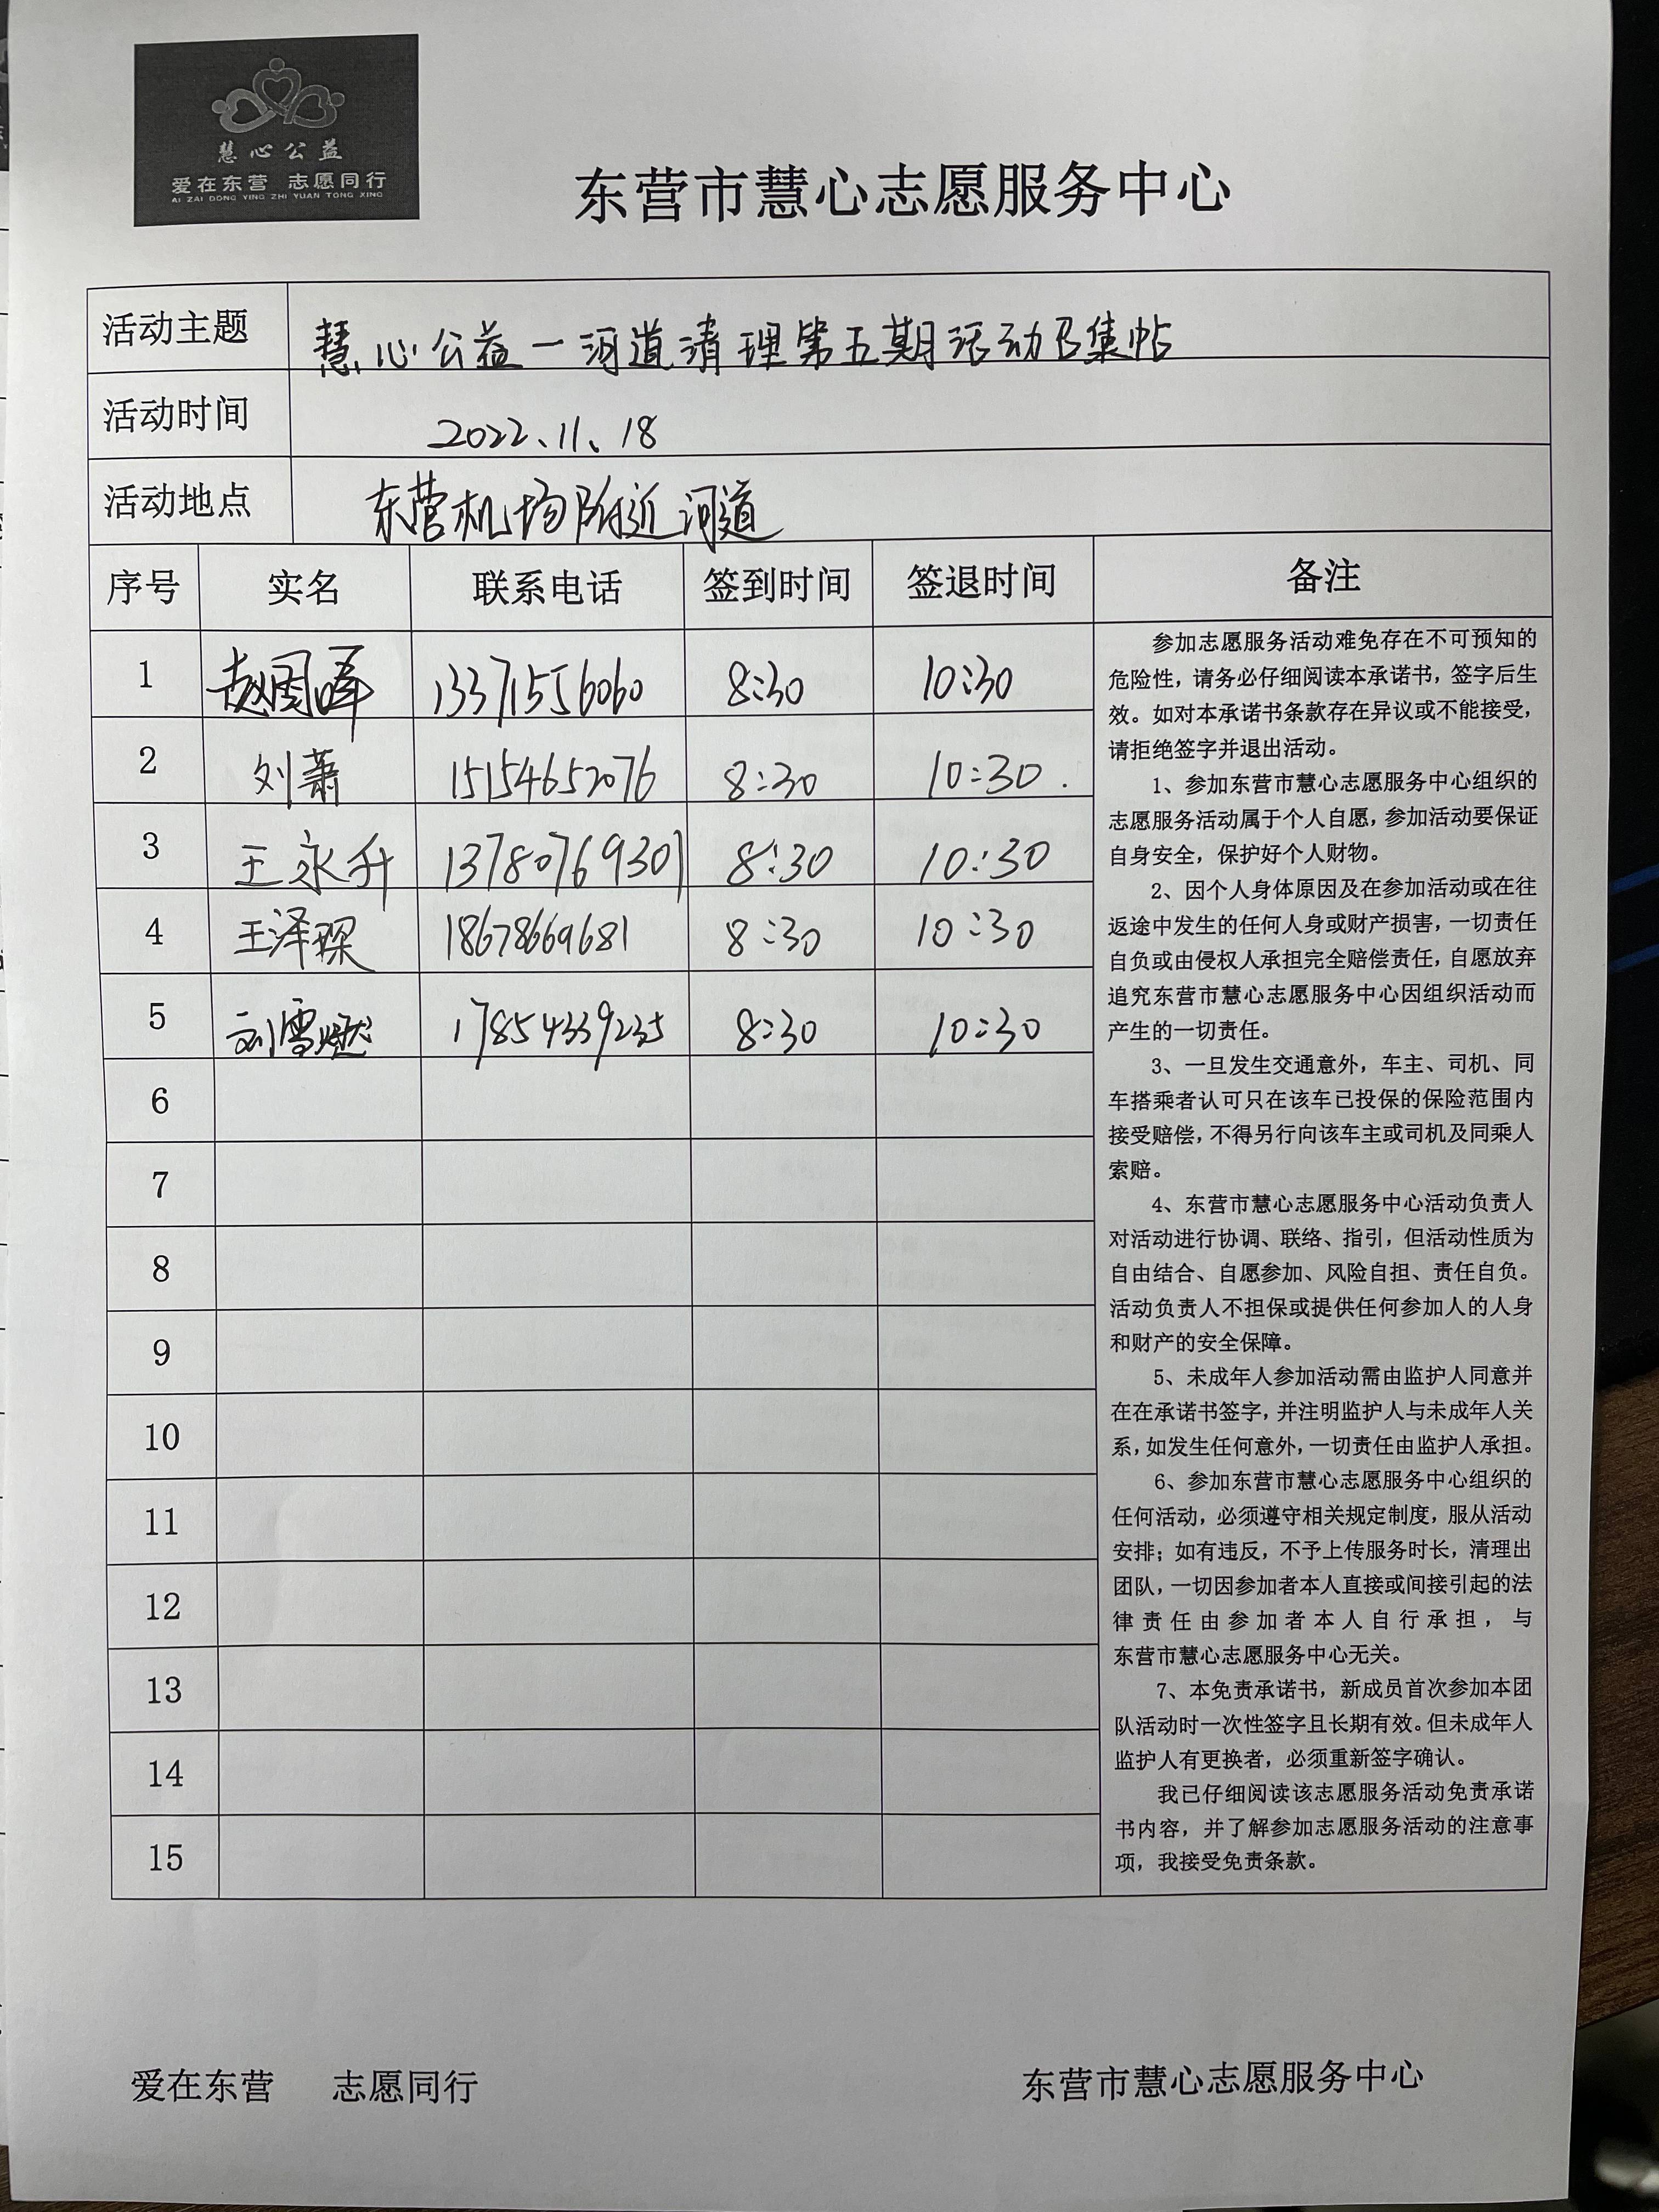 慧心公益
爱在东营 志愿同行
AI ZAI DONG YING ZHI YUAN TONG XING
东营市慧心志愿服务中心
活动主题 慧心公益一河道清理第五期活动召集帖
活动时间 2022、11、18
活动地点 东营机场附近河道
序号 实名 联系电话 签到时间 签退时间 备注
1 13371556060 8:30 10:30
2 刘萧 15154652076 8:30 10:30.
3 王永升 13780769301 8:30 10:30
4 王泽琛 18678669681 8:30 10:30
5 刘雪燃 17854339235 8:30 10:30
6
7
8
9
10
11
12
13
14
15
参加志愿服务活动难免存在不可预知的
危险性，请务必仔细阅读本承诺书，签字后生
效。如对本承诺书条款存在异议或不能接受，
请拒绝签字并退出活动。
1、参加东营市慧心志愿服务中心组织的
志愿服务活动属于个人自愿，参加活动要保证
自身安全，保护好个人财物。
2、因个人身体原因及在参加活动或在往
返途中发生的任何人身或财产损害，一切责任
自负或由侵权人承担完全赔偿责任，自愿放弃
追究东营市慧心志愿服务中心因组织活动而
产生的一切责任。
3、一旦发生交通意外，车主、司机、同
车搭乘者认可只在该车已投保的保险范围内
接受赔偿，不得另行向该车主或司机及同乘人
索赔。
4、东营市慧心志愿服务中心活动负责人
对活动进行协调、联络、指引，但活动性质为
自由结合、自愿参加、风险自担、责任自负。
活动负责人不担保或提供任何参加人的人身
和财产的安全保障。
5、未成年人参加活动需由监护人同意并
在在承诺书签字，并注明监护人与未成年人关
系，如发生任何意外，一切责任由监护人承担。
6、参加东营市慧心志愿服务中心组织的
任何活动，必须遵守相关规定制度，服从活动
安排；如有违反，不予上传服务时长，清理出
团队，一切因参加者本人直接或间接引起的法
律责任由参加者本人自行承担，与
东营市慧心志愿服务中心无关。
7、本免责承诺书，新成员首次参加本团
队活动时一次性签字且长期有效。但未成年人
监护人有更换者，必须重新签字确认。
我已仔细阅读该志愿服务活动免责承诺
书内容，并了解参加志愿服务活动的注意事
项，我接受免责条款。
爱在东营 志愿同行 东营市慧心志愿服务中心